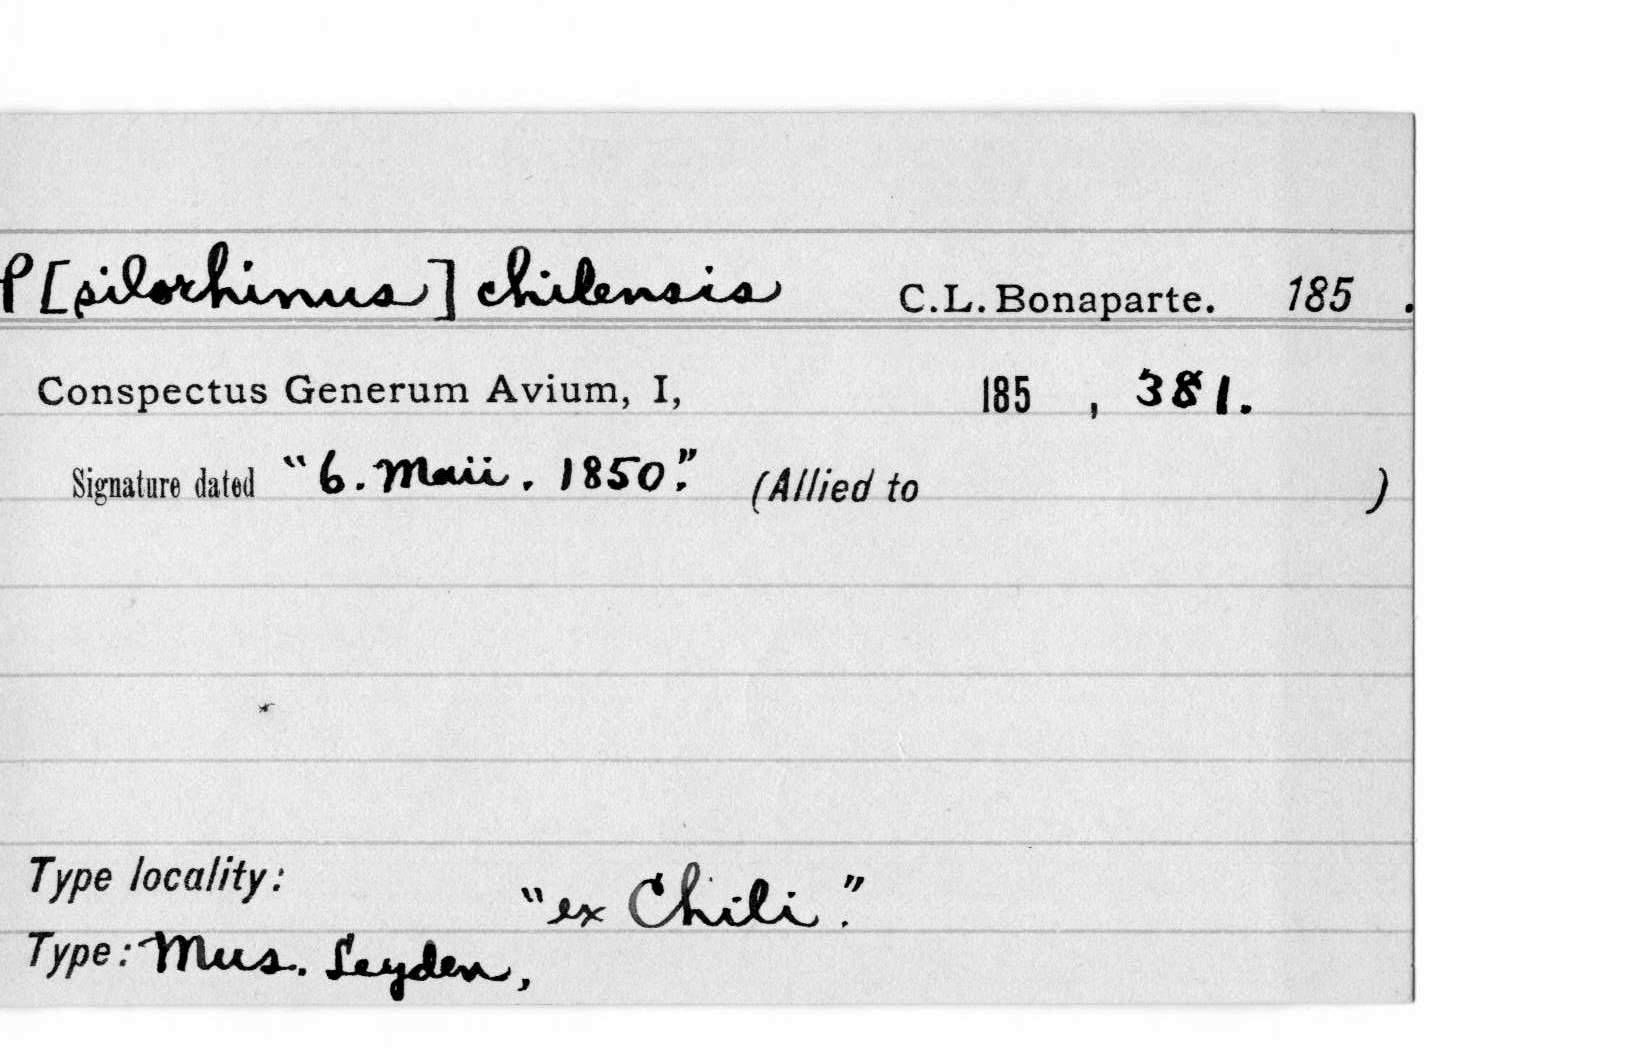 P[silorhinus] chilensis C.L. Bonaparte. 185 .
Conspectus Generum Avium, I, 185 , 381.
Signature dated "6. Maii. 1850". (Allied to )
Type locality: "ex Chili".
Type: Mus. Leyden,